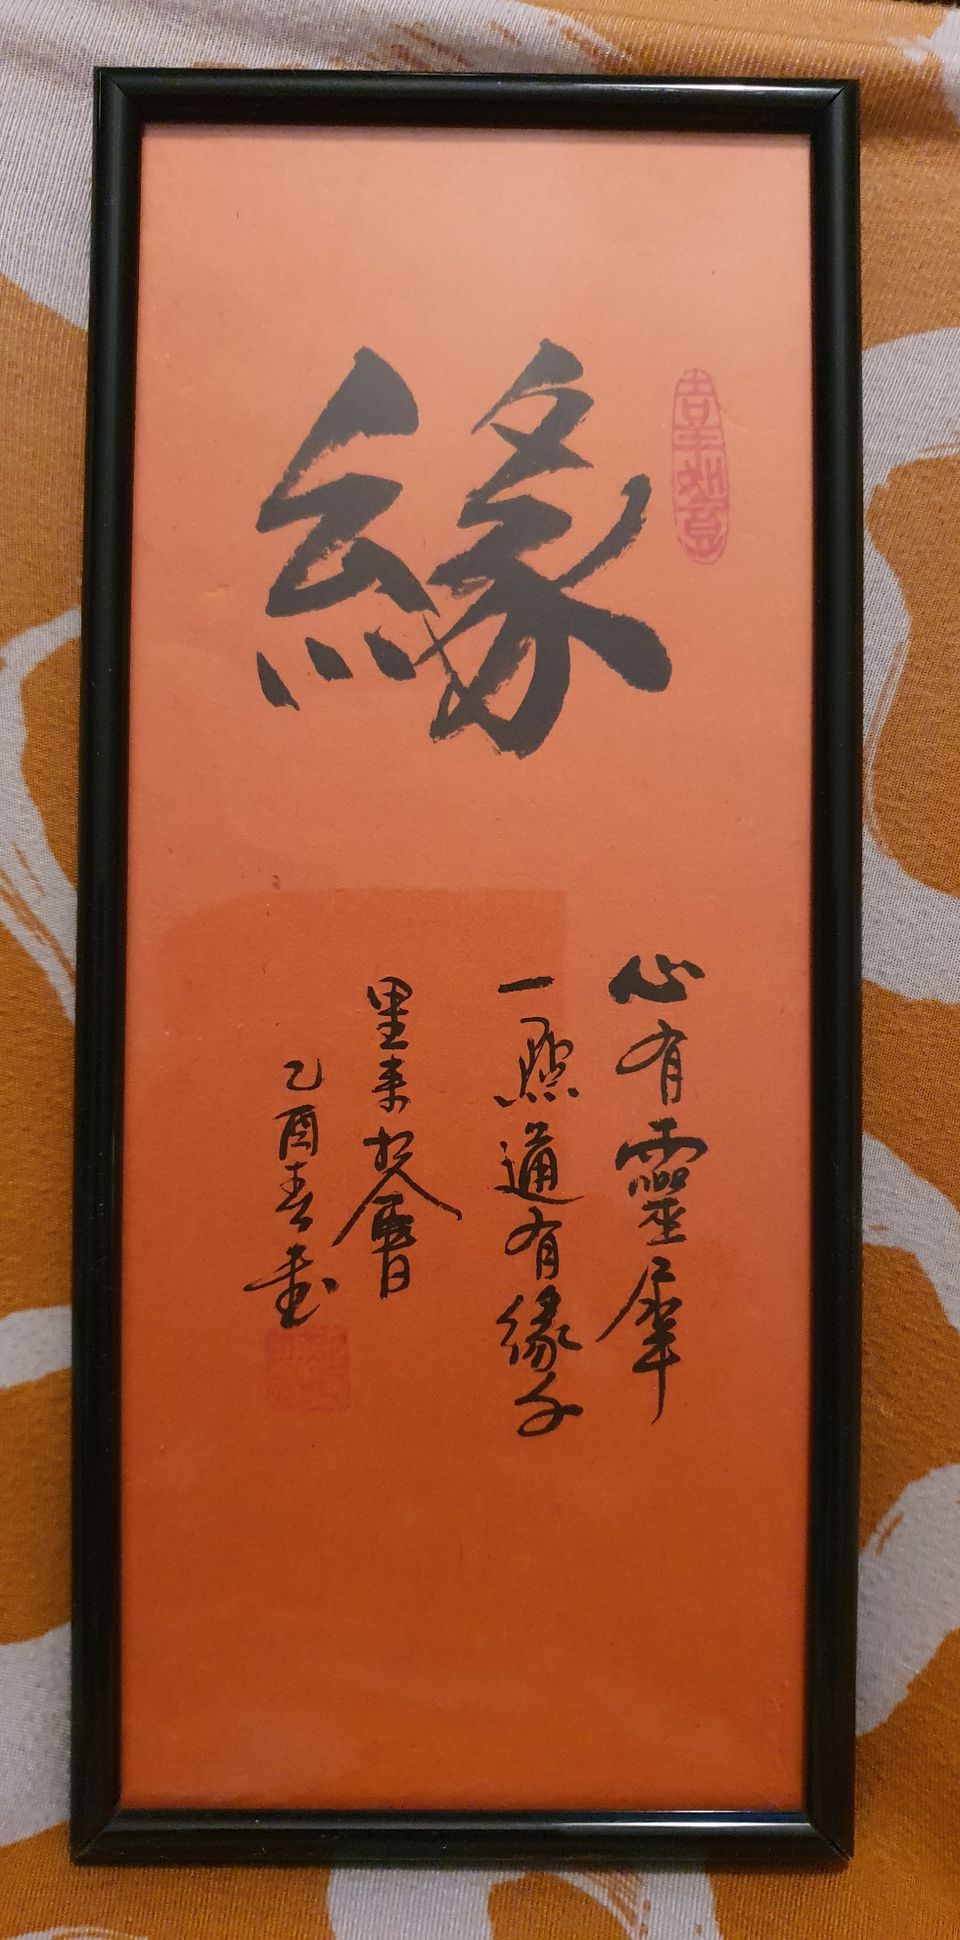 緣
吉羊如意
心有靈犀
一點通有緣千
里来相會
乙酉春書